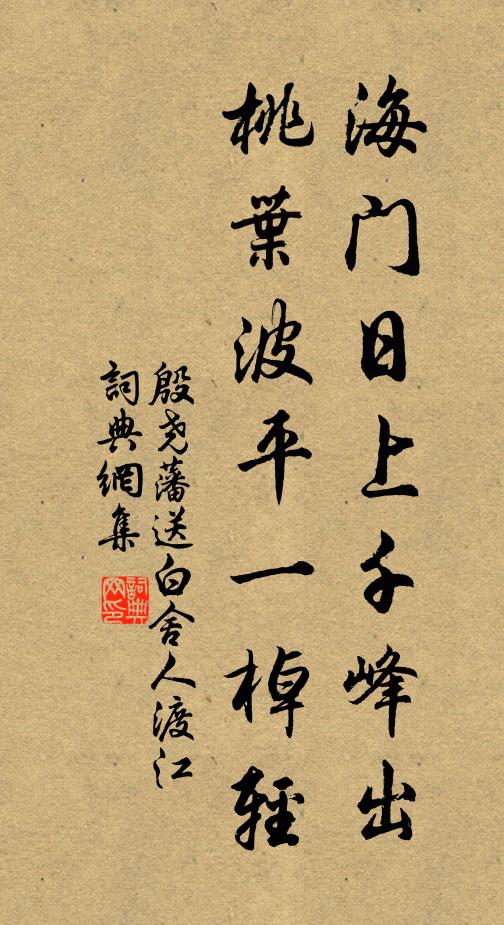 海门日上千峰出
桃葉波平一棹輕
殷尧藩送白舍人渡江
詞典網集
詞典網印